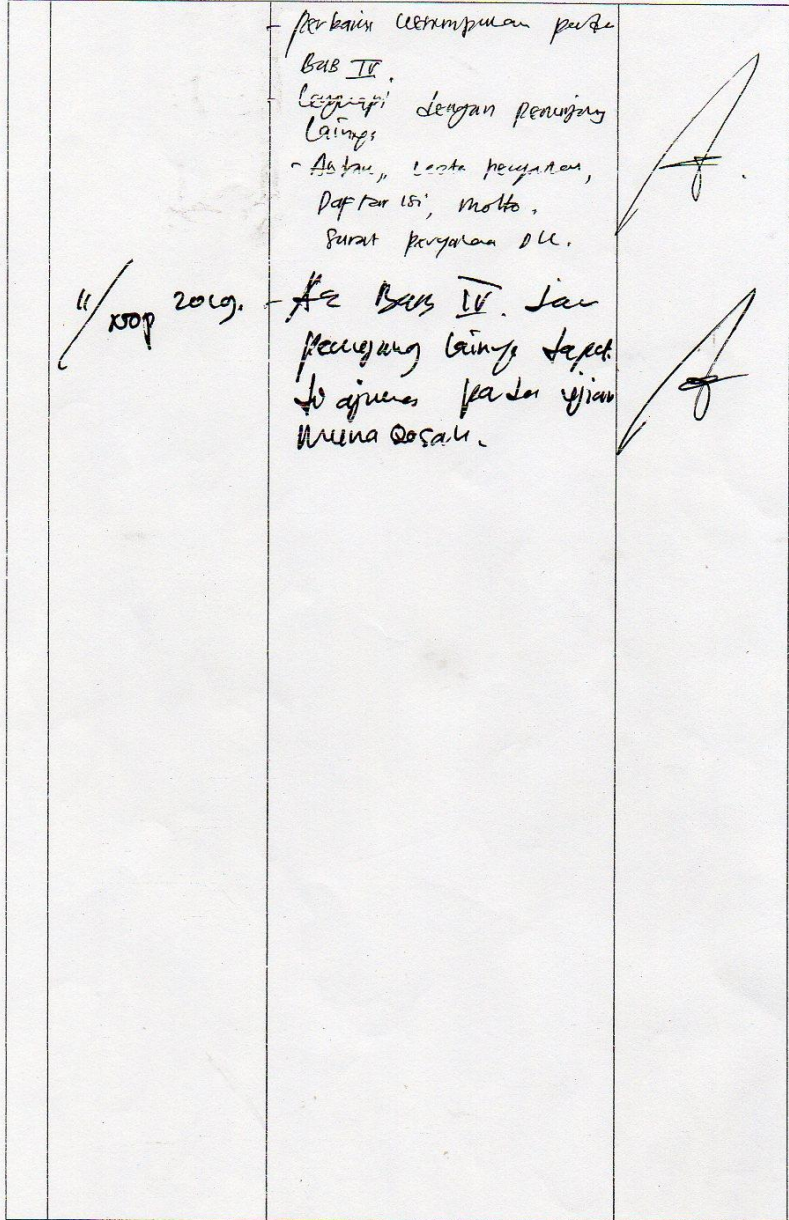 - Perbaiki kesimpulan pada
Bab IV.
- Lengkapi dengan penunjang
lainnya
- Abstrak, kata pengantar,
Daftar isi, motto.
Surat pernyataan Dll.
11/ 2019. - Acc Bab IV. dan
penunjang lainnya dapat
di ajukan pada ujian
Muna Qosah.